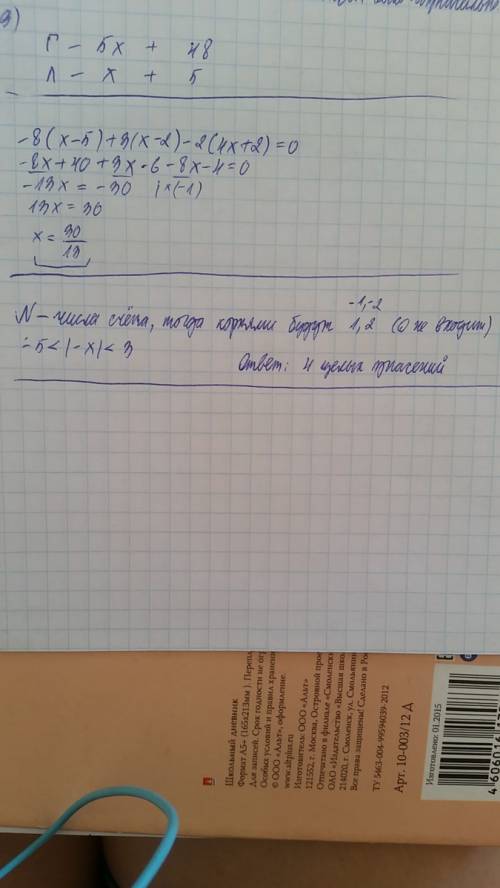 3)
Г – 5х + 48
Л – х + 5
-8(х-5)+3(х-2)-2(4х+2)=0
-8х+40+3х-6-8х-4=0
-13х = -30 |×(-1)
13х = 30
х = 30/13
-1,-2
N – числа счёта, тогда корнями будут 1,2 (0 не входит)
-5<|-х|<3
Ответ: 4 целых значений
Школьный дневник
Формат А5+ (165х213мм). Перепл
Для записей. Срок годности не огр
Особых условий и правил хранени
© ООО «Альт», оформление.
www.altplus.ru
Изготовитель: ООО «Альт»
121552, г. Москва, Островной прое
Отпечатано в филиале «Смоленски
ОАО «Издательство «Высшая шко
214020, г. Смоленск, ул. Смольянин
Все права защищены! Сделано в Рос
ТУ 5463-004-99594039-2012
Арт. 10-003/12 Д
Изготовлено: 01.2015